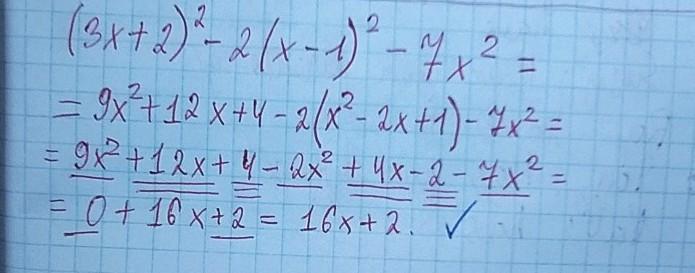 (3x+2)² - 2(x-1)² - 7x² =
= 9x² + 12x + 4 - 2(x² - 2x + 1) - 7x² =
= 9x² + 12x + 4 - 2x² + 4x - 2 - 7x² =
= 0 + 16x + 2 = 16x + 2. ✓